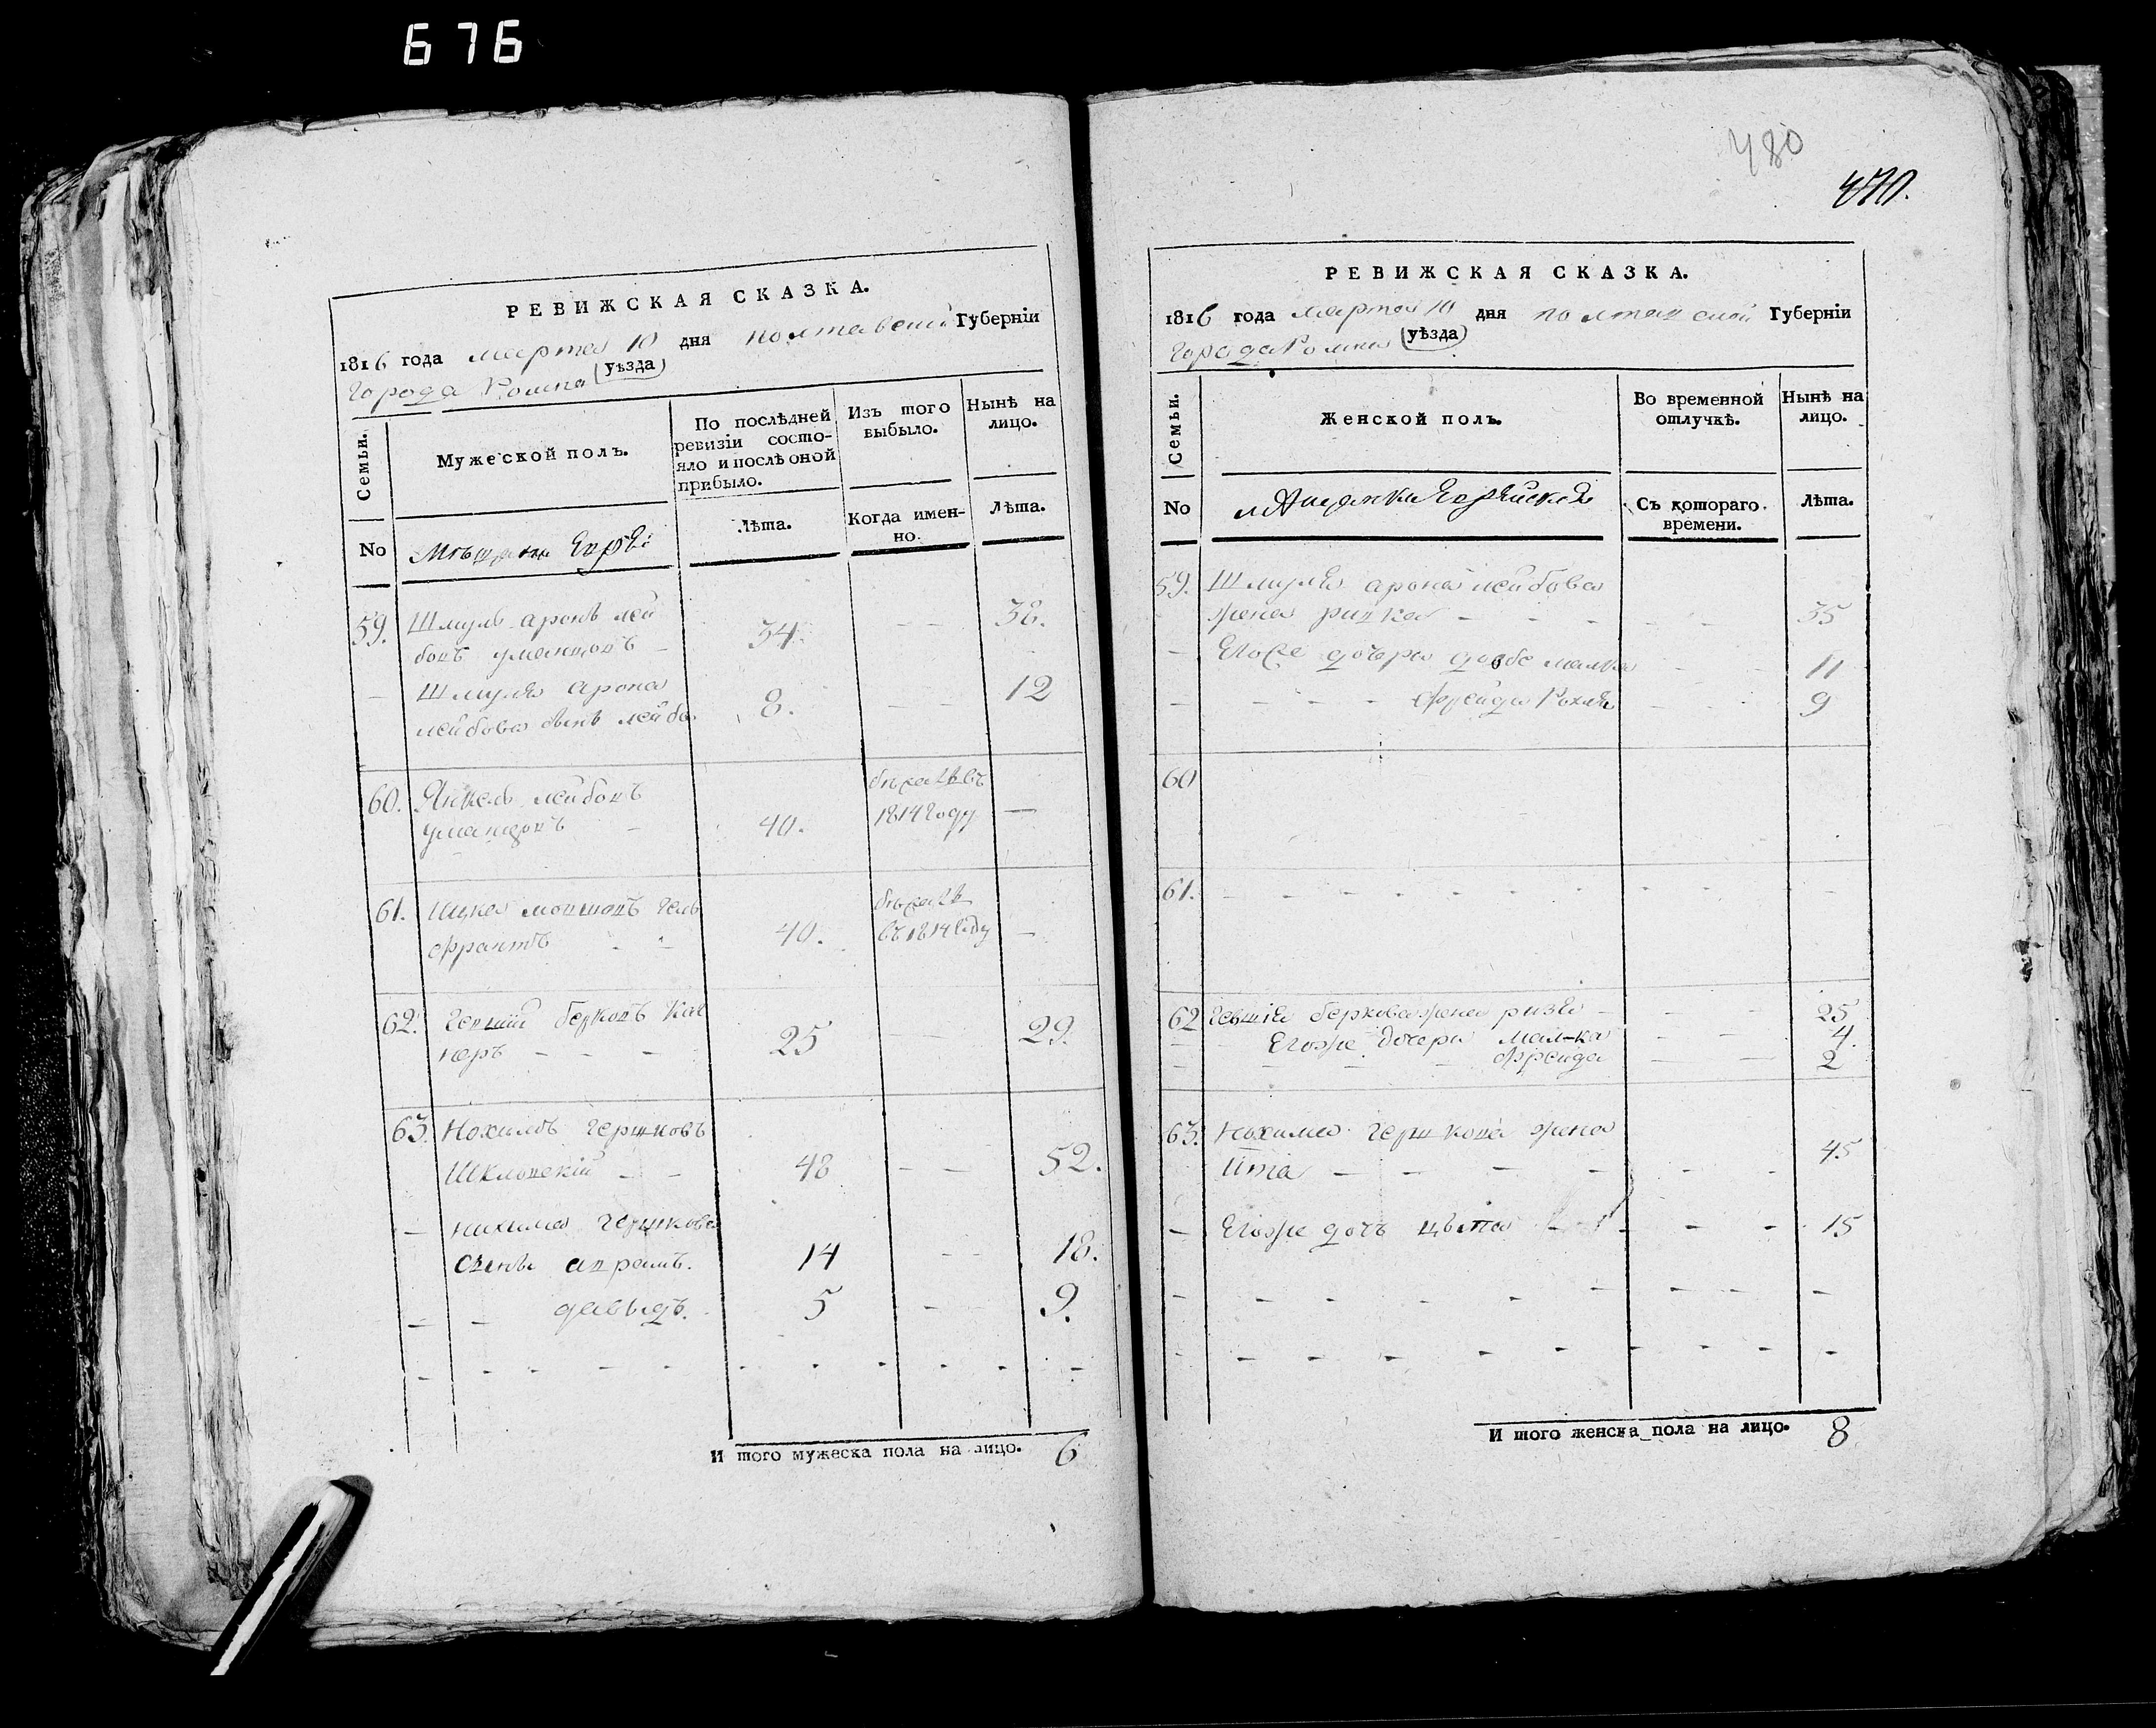 676
РЕВИЖСКАЯ СКАЗКА.
1816 года марта 10 дня полтавской Губерніи
города Ромна (уѣзда)
Семьи.
Мужеской полъ.
По послѣдней ревизіи состо-
яло и послѣ оной
прибыло.
Изъ того
выбыло.
Нынѣ на
лицо.
No
Мѣщане Евреи
Лѣта.
Когда имен-
но.
Лѣта.
59. Шмуль аронъ лей
бовъ уманцовъ - 34. - - 38.
- Шмуля арона
лейбова сынъ лейба 8. - - 12
60. Янкель лейбовъ
уманцовъ - 40. бѣжалъ въ
1814 году —
61. Ицка мовшовъ гель
франтъ - - 40. бѣжалъ
въ 1814 году —
62. Гевшій берковъ Кав
неръ - - - 25 — 29.
63. Нохимъ гершковъ
Шкловскій - - 48 - — 52.
- нохима гершкова
сынъ аврамъ. 14 - - 18.
- - давыдъ. 5 - 9.
И того мужеска пола на лицо. 6
480
470.
РЕВИЖСКАЯ СКАЗКА.
1816 года марта 10 дня полтавской Губерніи
города Ромна (уѣзда)
Семьи.
Женской полъ.
Во временной
отлучкѣ.
Нынѣ на
лицо.
No
мѣщанки Еврейскія
Съ котораго
времени.
Лѣта.
59. Шмуля арона лейбова
жена ривка - - - - - 35
- Егоже дочери добе малка - - 11
- - - - фрейда Рохля - - 9
60
61. - - - - - - - - - -
62 Гевшія беркова жена ризя - - - 25
- Егоже дочери малка - - 4.
- - - - фрейда — — 2
63. Нохима гершкова жена
Ита - — - - - - 45
- Егоже дочь цыпа - - - - 15
И того женска пола на лицо. 8